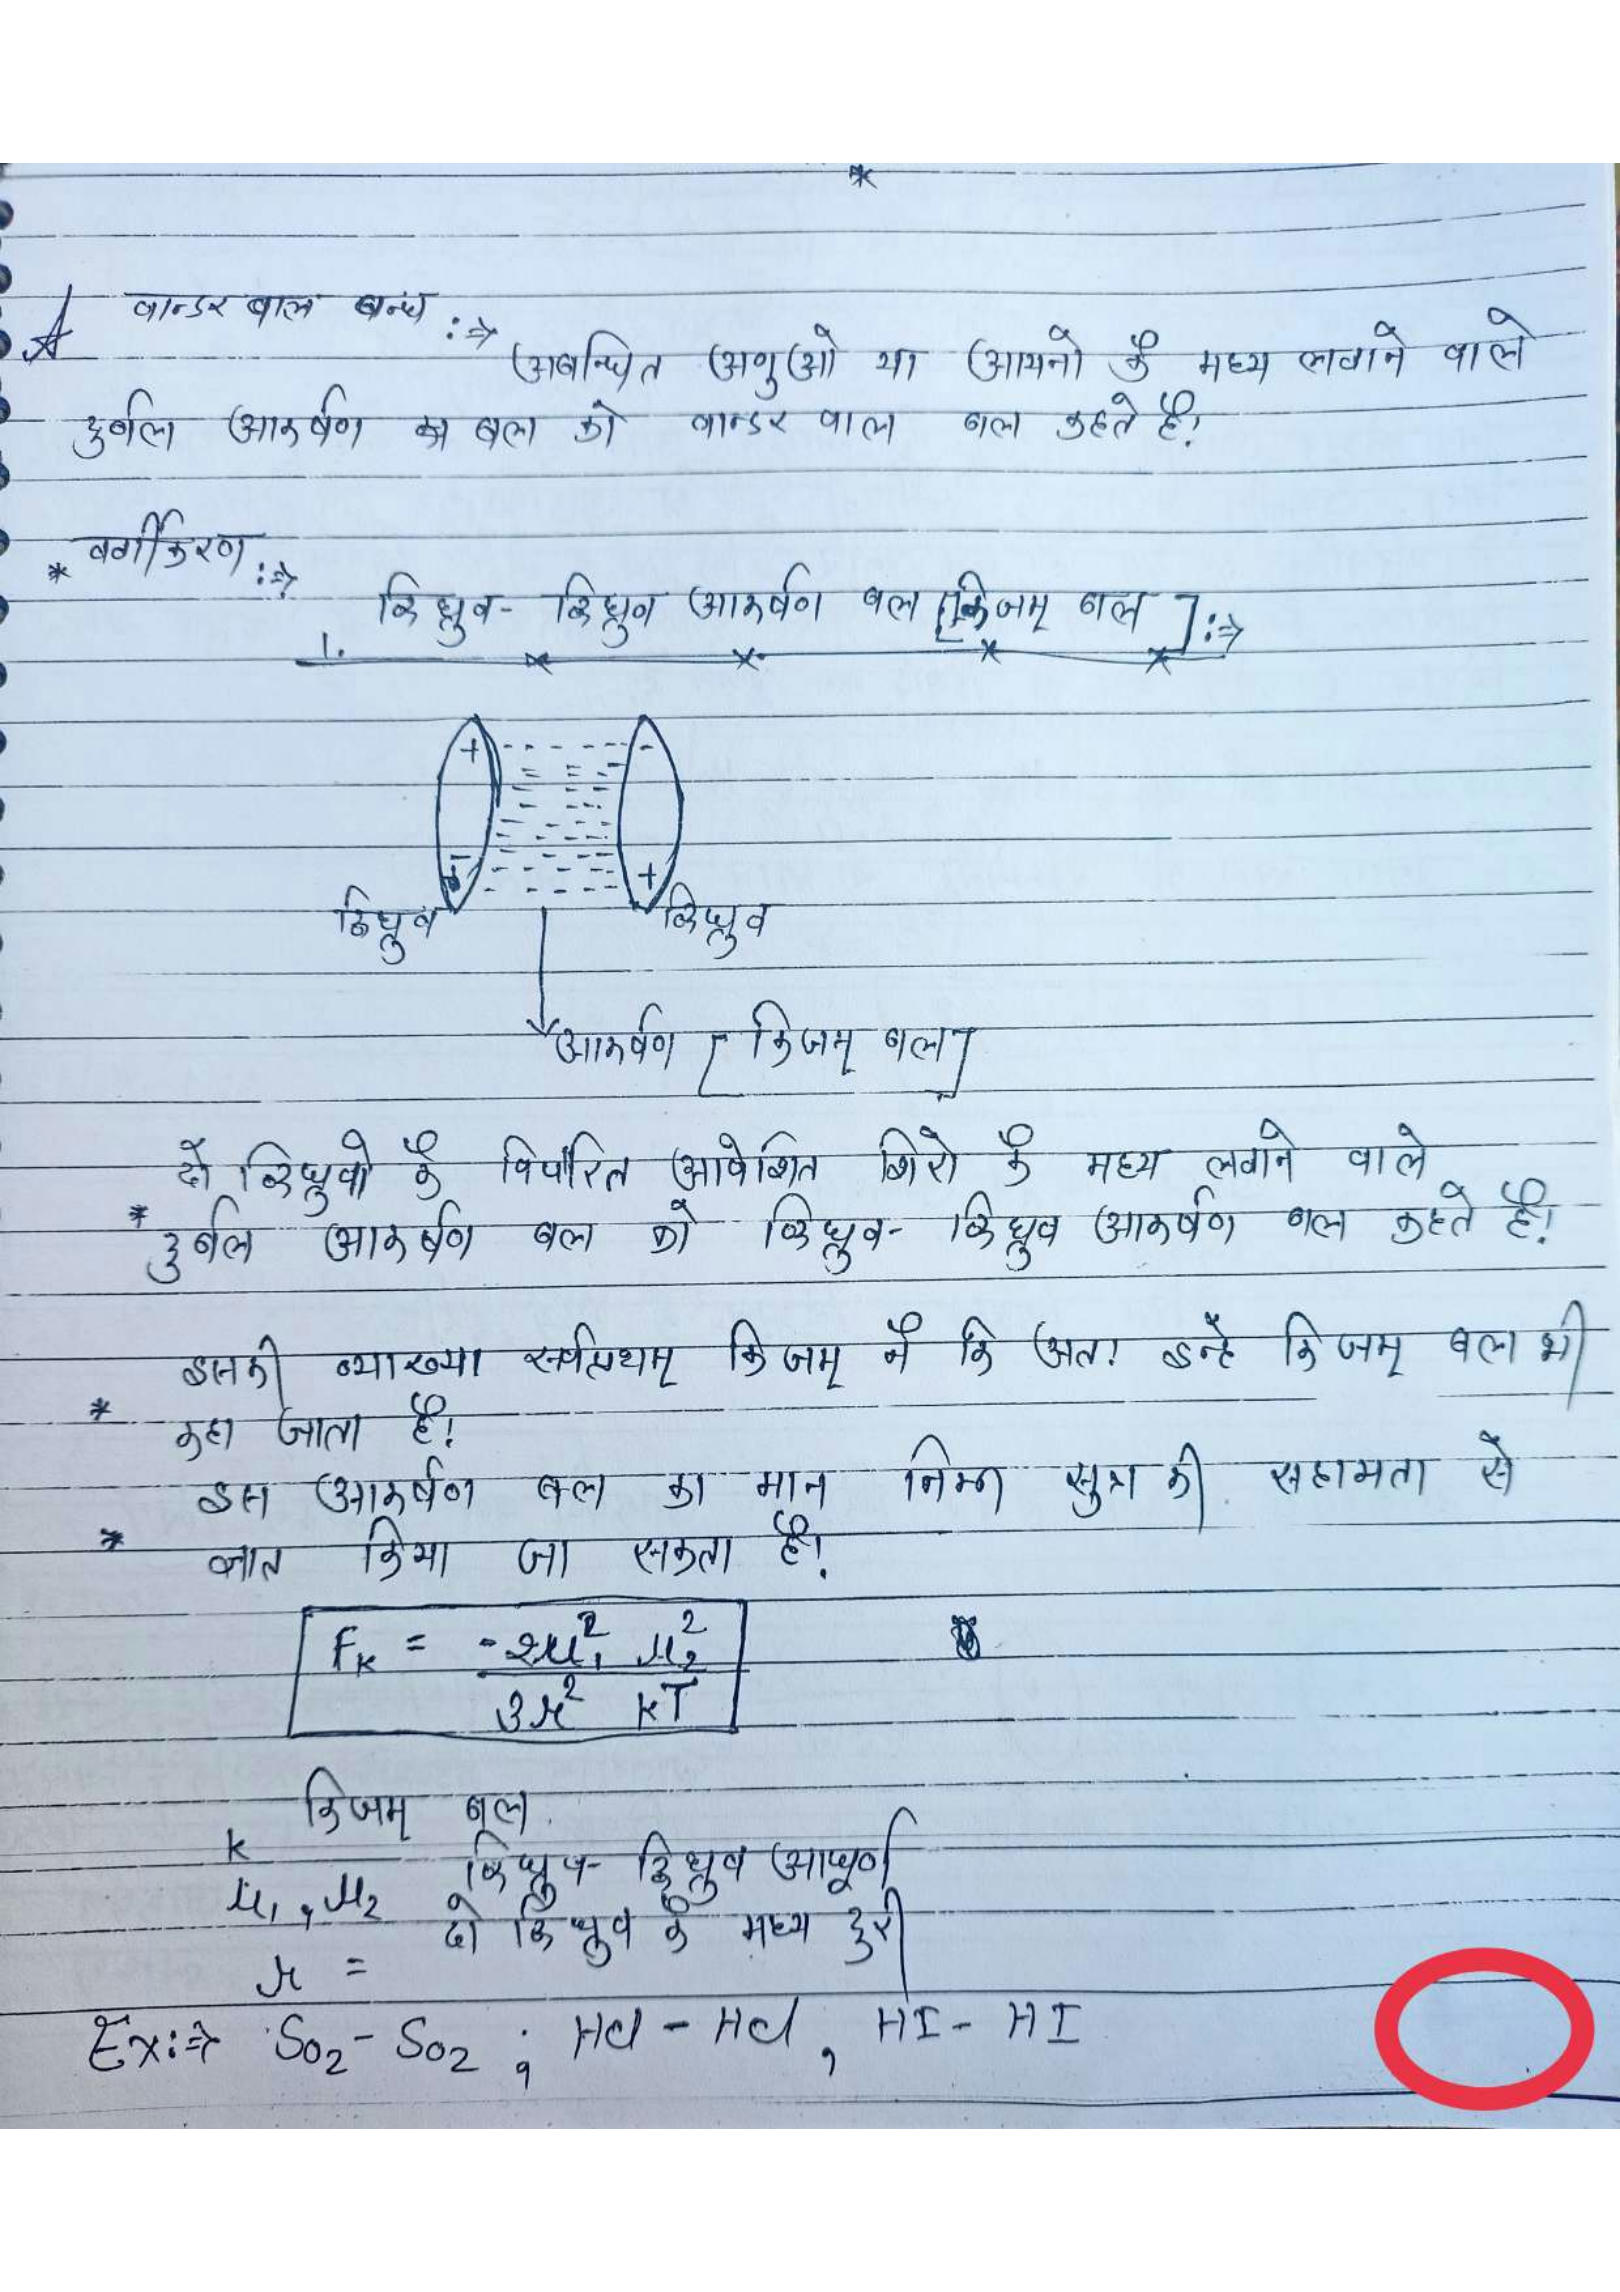 वान्डर वाल बन्ध :⇒
अबन्धित अणुओ या आयनो के मध्य लगने वाले
दुर्बल आकर्षण बल को वान्डर वाल बल कहते है!
* वर्गीकरण :⇒
1. द्विध्रुव - द्विध्रुव आकर्षण बल [किजम् बल] :⇒
+ -
- +
द्विध्रुव द्विध्रुव
आकर्षण [किजम् बल]
दो द्विध्रुवो के विपरित आवेशित शिरो के मध्य लगने वाले
* दुर्बल आकर्षण बल को द्विध्रुव - द्विध्रुव आकर्षण बल कहते है!
इसकी व्याख्या सर्वप्रथम् किजम् ने कि अत! इन्हे किजम् बल भी
* कहा जाता है!
इस आकर्षण बल का मान निम्न सुत्र की सहायता से
* ज्ञात किया जा सकता है!
F_K = -2μ₁² μ₂² / 3r² KT
किजम् बल
K
द्विध्रुव - द्विध्रुव आघूर्ण
μ₁, μ₂
दो द्विध्रुव के मध्य दुरी
r =
Ex:⇒ SO₂ - SO₂ ; HCl - HCl, HI - HI